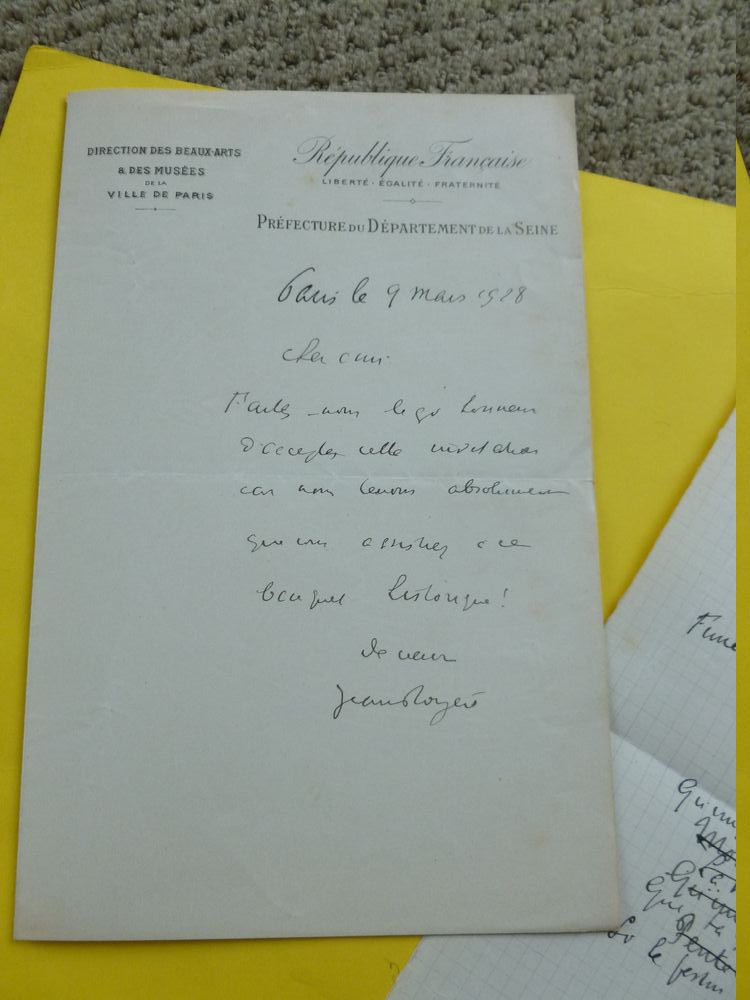 DIRECTION DES BEAUX-ARTS
& DES MUSÉES
DE LA
VILLE DE PARIS
République Française
LIBERTÉ · ÉGALITÉ · FRATERNITÉ
PRÉFECTURE DU DÉPARTEMENT DE LA SEINE
Paris le 9 mars 1928
cher ami
Faites-nous le honneur
d'accepter cette invitation
car nous tenons absolument
que vous assistiez à ce
banquet historique!
De cœur
Jean Royère
Que
So le festin